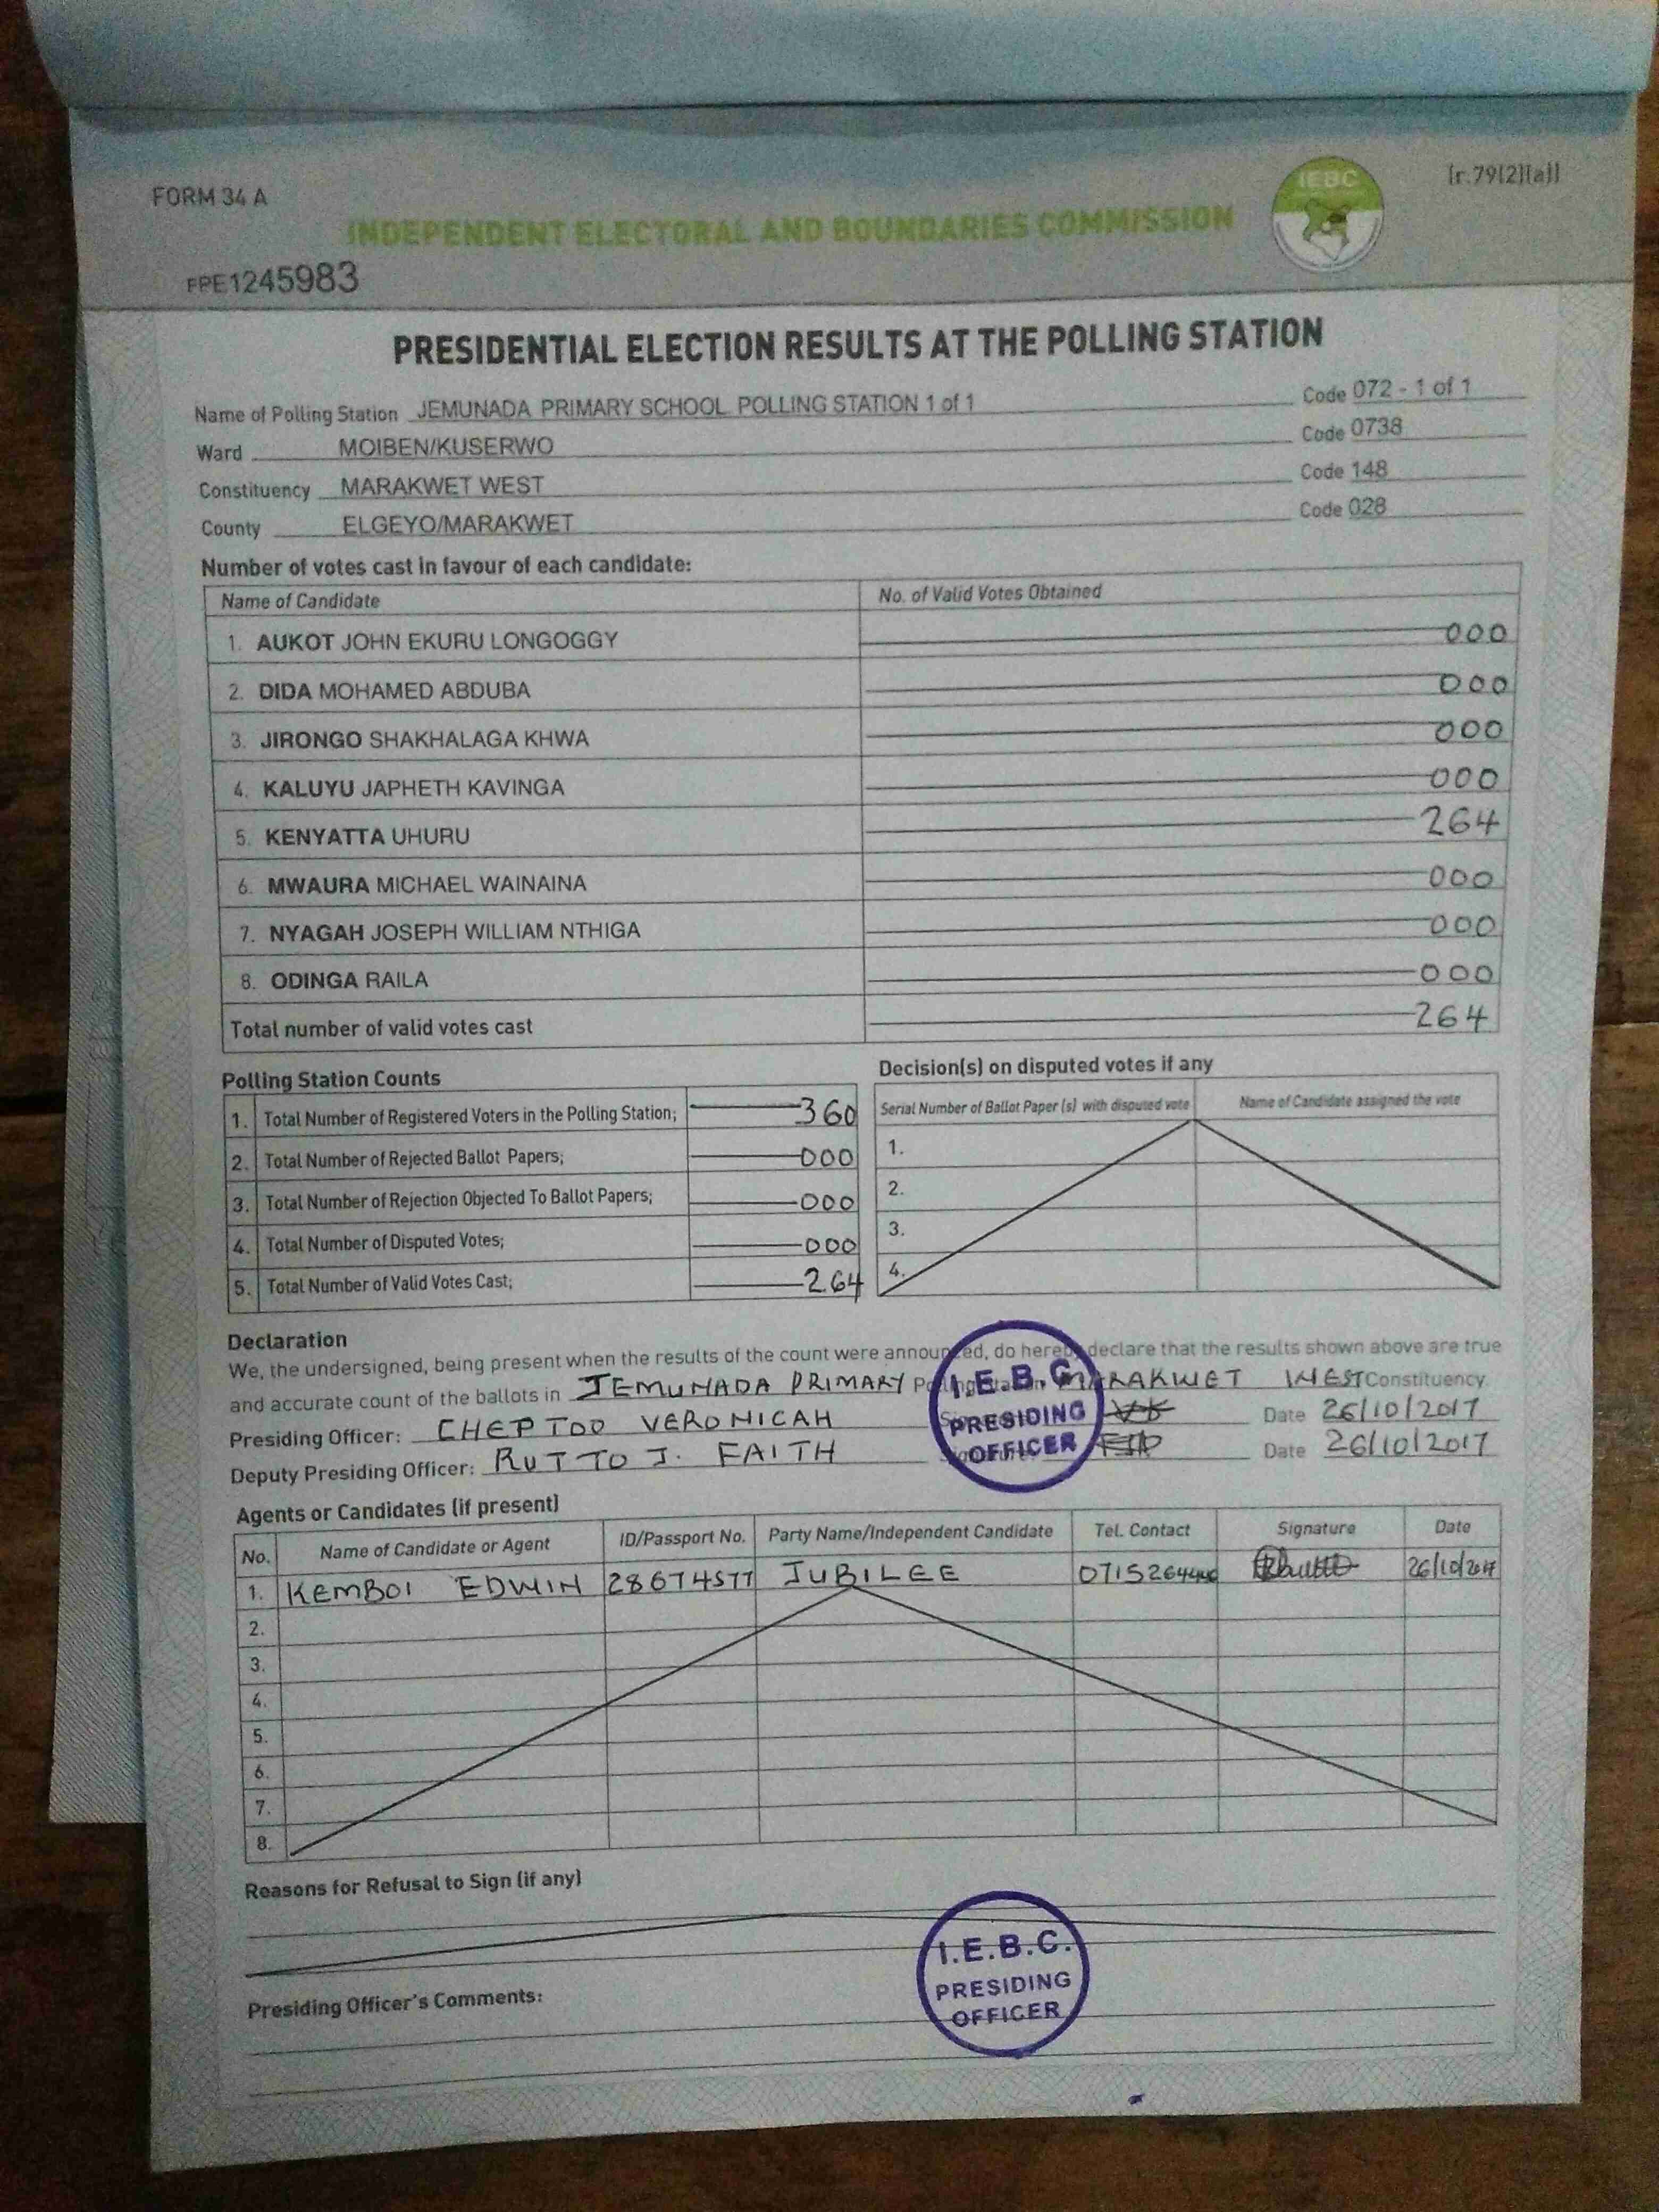 FORM 34 A
IEBC
[r.79(2)(a)]
INDEPENDENT ELECTORAL AND BOUNDARIES COMMISSION
FPE1245983
PRESIDENTIAL ELECTION RESULTS AT THE POLLING STATION
Name of Polling Station JEMUNADA PRIMARY SCHOOL POLLING STATION 1 of 1 Code 072 - 1 of 1
Ward MOIBEN/KUSERWO Code 0738
Constituency MARAKWET WEST Code 148
County ELGEYO/MARAKWET Code 028
Number of votes cast in favour of each candidate:
Name of Candidate No. of Valid Votes Obtained
1. AUKOT JOHN EKURU LONGOGGY 000
2. DIDA MOHAMED ABDUBA 000
3. JIRONGO SHAKHALAGA KHWA 000
4. KALUYU JAPHETH KAVINGA 000
5. KENYATTA UHURU 264
6. MWAURA MICHAEL WAINAINA 000
7. NYAGAH JOSEPH WILLIAM NTHIGA 000
8. ODINGA RAILA 000
Total number of valid votes cast 264
Polling Station Counts
1. Total Number of Registered Voters in the Polling Station; 360
2. Total Number of Rejected Ballot Papers; 000
3. Total Number of Rejection Objected To Ballot Papers; 000
4. Total Number of Disputed Votes; 000
5. Total Number of Valid Votes Cast; 264
Decision(s) on disputed votes if any
Serial Number of Ballot Paper (s) with disputed vote Name of Candidate assigned the vote
1.
2.
3.
4.
Declaration
We, the undersigned, being present when the results of the count were announced, do hereby declare that the results shown above are true
and accurate count of the ballots in JEMUNADA PRIMARY Polling Station MARAKWET WEST Constituency.
Presiding Officer: CHEPTOO VERONICAH Date 26/10/2017
Deputy Presiding Officer: RUTTO J. FAITH Date 26/10/2017
I.E.B.C.
PRESIDING
OFFICER
Agents or Candidates (if present)
No. Name of Candidate or Agent ID/Passport No. Party Name/Independent Candidate Tel. Contact Signature Date
1. KEMBOI EDWIN 28674577 JUBILEE 26/10/2017
2.
3.
4.
5.
6.
7.
8.
Reasons for Refusal to Sign (if any)
I.E.B.C.
PRESIDING
OFFICER
Presiding Officer's Comments: